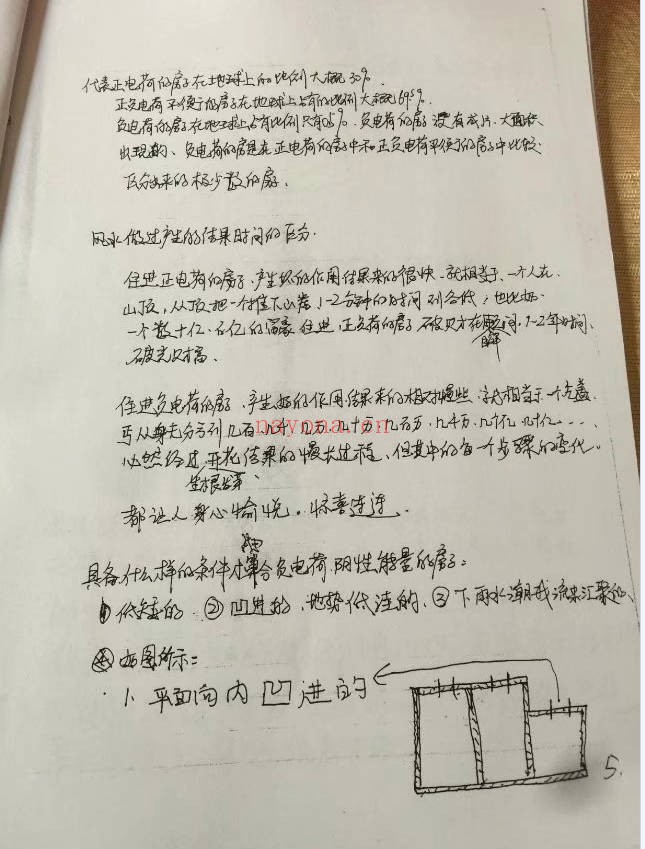 代表正电荷的房子在地球上的比例大概30%.
正负电荷平衡的房子在地球上占有的比例大概69.5%.
负电荷的房子在地球上占有比例只有0.5%. 负电荷的房子没有成片.大面积.
出现的、负电荷的房是在正电荷的房子中和正负电荷平衡的房子中比较.
区分出来的极少数的房.
风水做过产生的结果时间的区分.
住进正电荷的房子.产生坏的作用结果来的很快.就相当于.一个人在.
山顶,从顶把一个推下山崖1-2分钟的时间到谷低,也比如.
一个数十亿.百亿的富豪.住进.正负荷的房子破贝才在 瞬间.1-2年时间.
破完贝才富.
住进负电荷的房.产生好的作用结果来的相对慢些.就相当于一个
马从身无分号到几百.几千.几万.几十万.几百万.几千万.几个亿.几十亿.....
必然经过 开花结果的慢长过程.但其中的每一个步骤的变化.
生根
都让人身心愉悦。惊喜连连.
nayona.cn
具备什么样的条件才算合负电荷.阴性能量的房子:
① 低矮的. ② 凹进的.地势低洼的. ③ 下雨水潮 流来汇聚的.
④ 如图所示:
1. 平面向内凹进的
5.